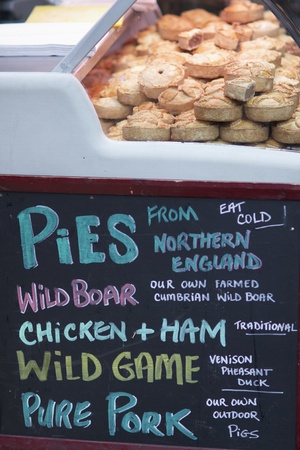 PiES FROM
EAT
COLD!
NORTHERN
ENGLAND
WiLD BOAR
OUR OWN FARMED
CUMBRIAN WILD BOAR
CHiCKEN + HAM
TRADITIONAL
WiLD GAME
VENISON
PHEASANT
DUCK
PURE PORK
OUR OWN
OUTDOOR
PIGS